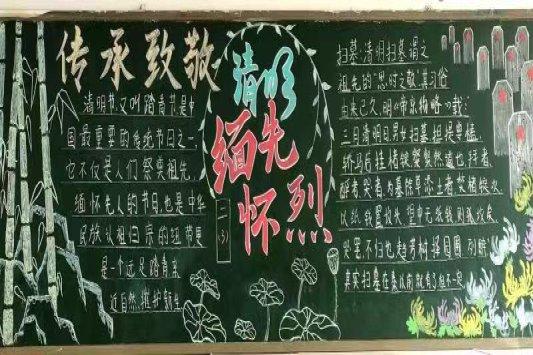 传承致敬
清明节又叫踏青节是中
国最重要的传统节日之一,
它不仅是人们祭奠祖先,
缅怀先人的节日,也是中华
民族认祖归宗的纽带更
是一个远足踏青亲
近自然,护新生
清明
缅怀
先烈
扫墓清明扫墓谓之
祖先的"思时之敬"其习俗
由来已久,明《帝京略》载:
三月清明日男女扫墓担提尊榼,
轿马后挂楮锭粲粲然满道也,拜者、
酹者、哭者、为墓除草添土者,焚楮锭次
以纸钱置坟头,望中无纸钱则孤坟矣,
哭罢,不归也趋芳树择园圃列
真实扫墓在秦以前就有了但不一定